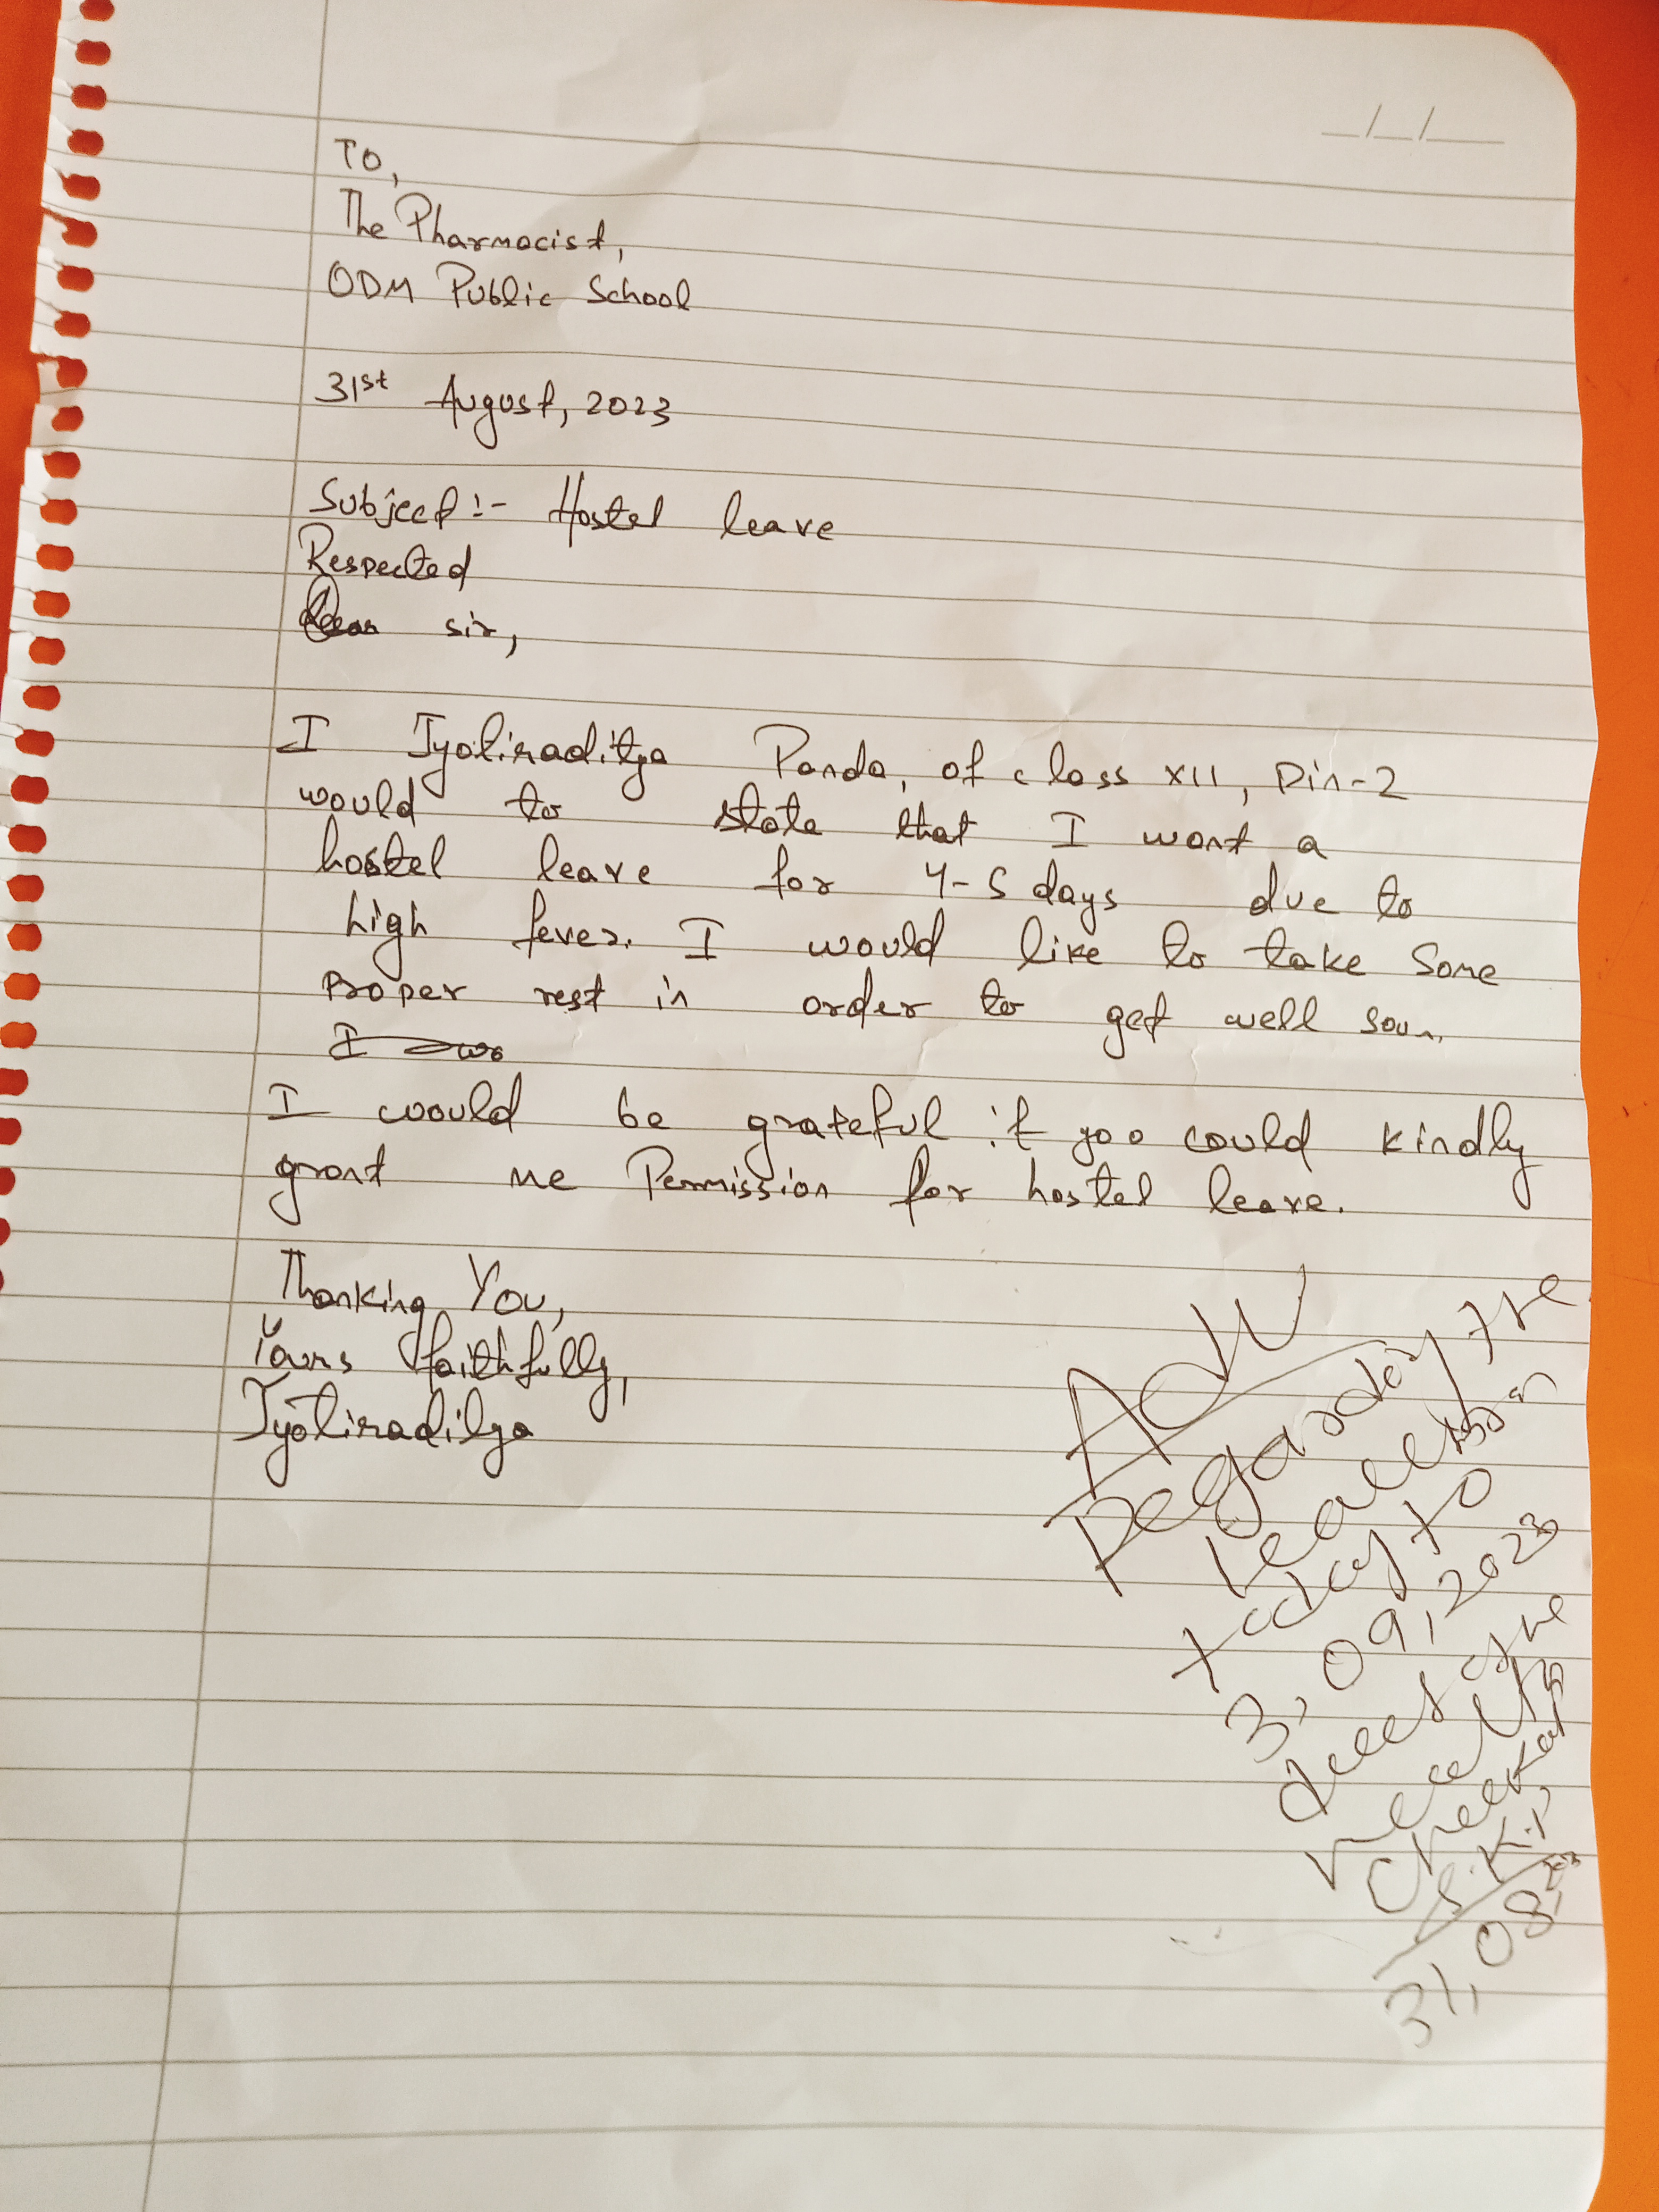 To,
The Pharmacist,
ODM Public School
31st August, 2023
Subject :- Hostel leave
Respected
Dear sir,
I Jyotiraditya Panda, of class XII, Din-2
would to state that I want a
hostel leave for 4-5 days due to
high fever. I would like to take some
proper rest in order to get well soon.
I wo
I would be grateful if you could kindly
grant me Permission for hostel leave.
Thanking You,
Yours faithfully,
Jyotiraditya
the
today to
3, 09, 2023
the
31, 08,